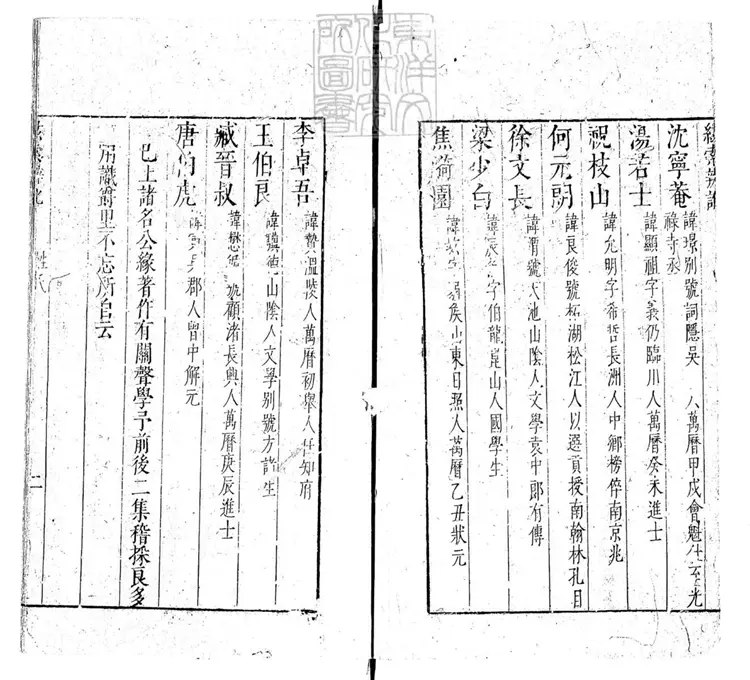 沈寧菴 諱璟別號詞隱吳 人萬曆甲戌會魁仕至光
祿寺丞
湯若士 諱顯祖字義仍臨川人萬曆癸未進士
祝枝山 諱允明字希哲長洲人中鄉榜倅南京兆
何元朗 諱良俊號柘湖松江人以選貢授南翰林孔目
徐文長 諱渭號天池山陰人文學袁中郎有傳
梁少白 諱辰 字伯龍崑山人國學生
焦漪園 諱 弱侯山東日照人萬曆乙丑狀元
李卓吾 諱贄溫陵人萬曆初舉人任知府
王伯良 諱驥德山陰人文學別號方諸生
臧晉叔 諱懋 號顧渚長興人萬曆庚辰進士
唐伯虎 諱寅吳郡人曾中解元
已上諸名公緣著作有關聲學予前後二集稽採良多
用識爵里不忘所自云
二
東洋文化研究所圖書